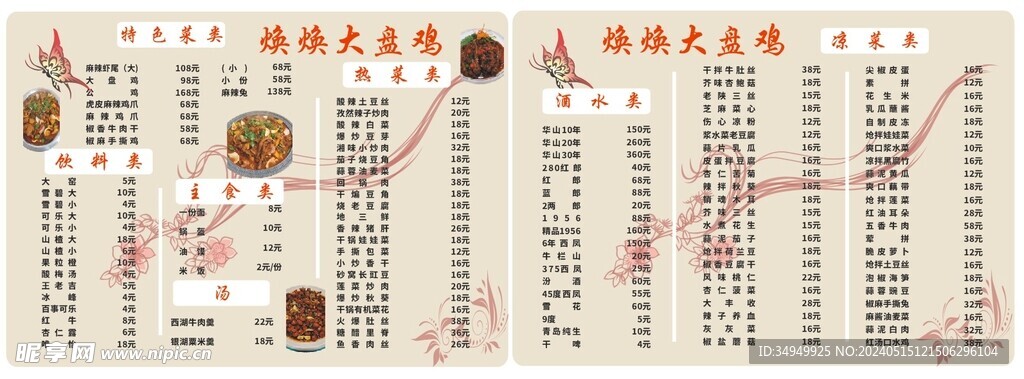 特色菜类
焕焕大盘鸡
麻辣虾尾(大) 108元
大盘鸡 98元
公鸡 168元
虎皮麻辣鸡爪 68元
麻辣鸡爪 68元
椒香牛肉干 58元
椒麻手撕鸡 58元
(小) 68元
小份 58元
麻辣兔 138元
饮料类
大窑 5元
雪碧大 10元
雪碧小 4元
可乐大 10元
可乐小 4元
山楂大 18元
山楂小 6元
果粒橙 10元
酸梅汤 4元
王老吉 5元
冰峰 4元
百事可乐 4元
红牛 8元
杏仁露 6元
18元
主食类
一份面 8元
锅盔 10元
油馍 12元
米饭 2元/份
汤
西湖牛肉羹 22元
银湖粟米羹 18元
热菜类
酸辣土豆丝 12元
孜然辣子炒肉 20元
酸辣白菜 18元
爆炒豆芽 16元
湘味小炒肉 32元
茄子烧豆角 18元
蒜蓉油麦菜 18元
回锅肉 38元
干煸豆角 18元
烧老豆腐 18元
地三鲜 18元
香辣猪肝 26元
干锅娃娃菜 18元
手撕包菜 12元
小炒香干 16元
砂窝长豇豆 16元
莲菜炒肉 20元
爆炒秋葵 18元
干锅有机菜花 16元
火爆肚丝 38元
糖醋里脊 36元
鱼香肉丝 26元
焕焕大盘鸡
凉菜类
酒水类
华山10年 150元
华山20年 260元
华山30年 360元
280红郎 40元
红郎 68元
蓝郎 88元
2两郎 20元
1956 88元
精品1956 160元
6年西凤 150元
牛栏山 20元
375西凤 29元
汾酒 60元
45度西凤 55元
雪花 6元
9度 5元
青岛纯生 10元
干啤 4元
干拌牛肚丝 38元
芥味杏鲍菇 18元
老陕三丝 15元
芝麻菜心 18元
伤心凉粉 12元
浆水菜老豆腐 22元
蒜片乳瓜 16元
皮蛋拌豆腐 22元
杏仁苦菊 16元
辣拌秋葵 18元
销魂木耳 18元
芥味三丝 15元
水煮花生 15元
蒜泥茄子 16元
炝拌荷兰豆 18元
椒香豆腐干 16元
风味桃仁 22元
大丰收 28元
辣子养血 18元
灰灰菜 16元
椒盐蘑菇 18元
尖椒皮蛋 16元
素拼 12元
花生米 16元
乳瓜蘸酱 16元
自制皮冻 18元
炝拌娃娃菜 12元
爽口浆水菜 10元
凉拌黑腐竹 16元
蒜泥黄瓜 12元
爽口藕带 18元
炝拌莲菜 16元
红油耳朵 28元
五香牛肉 58元
荤拼 38元
脆皮萝卜 12元
炝拌土豆丝 16元
泡椒海笋 18元
蒜蓉豌豆 16元
椒麻手撕兔 32元
麻酱油麦菜 16元
蒜泥白肉 32元
红汤口水鸡 38元
昵享网 www.nipic.cn
ID:34949925 NO:20240515121506296104